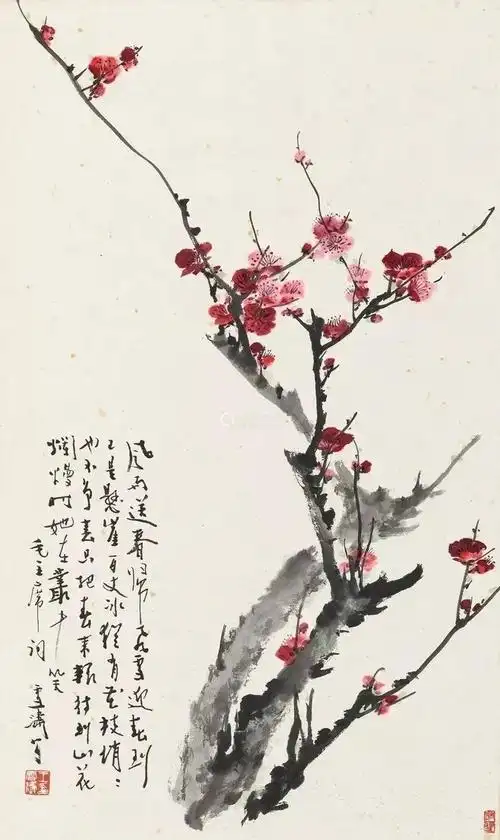 风雨送春归飛雪迎春到
已是懸崖百丈冰猶有花枝俏〻
也不争春只把春来報待到山花
爛熳时她在叢中笑
毛主席词 雪濤写